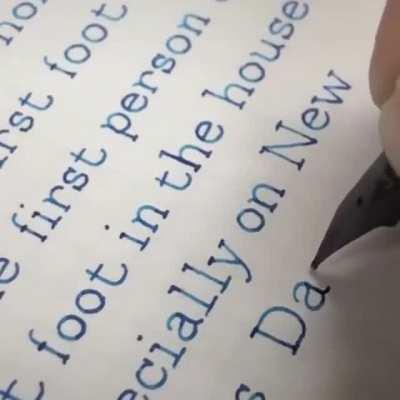 rst foot
e first person
t foot in the house
ecially on New
s Da